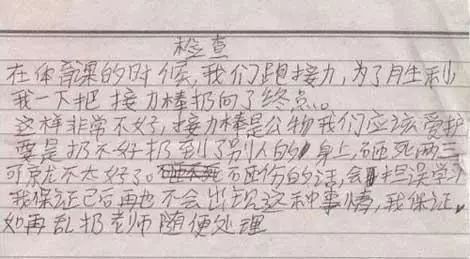 检查
在体育课的时候,我们跑接力,为了月生利
我一下把 接力棒扔向了终点。
这样非常不好,接力棒是公物我们应该爱护
要是扔不好扔到了别人的身上,砸死两三
可京尤不太好了。砸伤的话,会担误学习
我保证己后再也不会出现这种事情,我保证。
如再乱扔老师随便处理